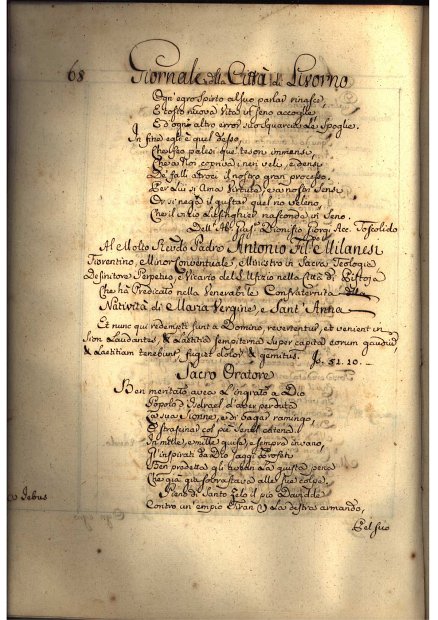 68 Giornale della Città di Livorno
Ogn' egro Spirto al suo parlar rinasce,
E tosto nuova Vita in seno accoglie
E d'ogni altro error si squarcia le Spoglie.
In fine egli è quel desso,
Che fea palesi que' tesori immensi,
Che a Noi copriva i neri veli, e densi
De' falli atroci il nostro gran processo.
Per Lui si Ama Virtude, e a nostri Sensi
Or si nega il gustar quel rio veleno,
Che il lusinghier nasconda in Seno.
Dell' Ab. Dionisio Giorgi Acc.
Al Molto Rev.do Padre Antonio Milanesi
Fiorentino, Minor Conventuale, Ministro in Sacra Teologia
Definitore Perpetuo, e Vicario del S. Ufizio nella Città di Pistoja
Che hà Predicato nella Venerabile Confraternita della
Natività di Maria Vergine, e Sant' Anna
Et nunc qui redempti sunt a Domino, revertentur, et venient in
Sion Laudantes, & Laetitia sempiterna super capita eorum gaudium,
& Laetitiam tenebunt, fugiet dolor & gemitus. Is. 51. 10.
Sacro Oratore
Ben meritato avea L'ingrato a Dio
Popolo d' Isdrael d'aver perduta
La sua Sionne, e di vagar ramingo,
E strascinar col piè servil catena
In mille, e mille guise, e sempre invano,
Gl'inspirati da Dio Saggi Profeti
Ben predetta gli avean La giusta pena
Che già già sobrastava alle sue colpe.
Pieno di Santo Zelo il pio Davidde
Contro un' empio Tiran La destra armando,
Del suo
debus